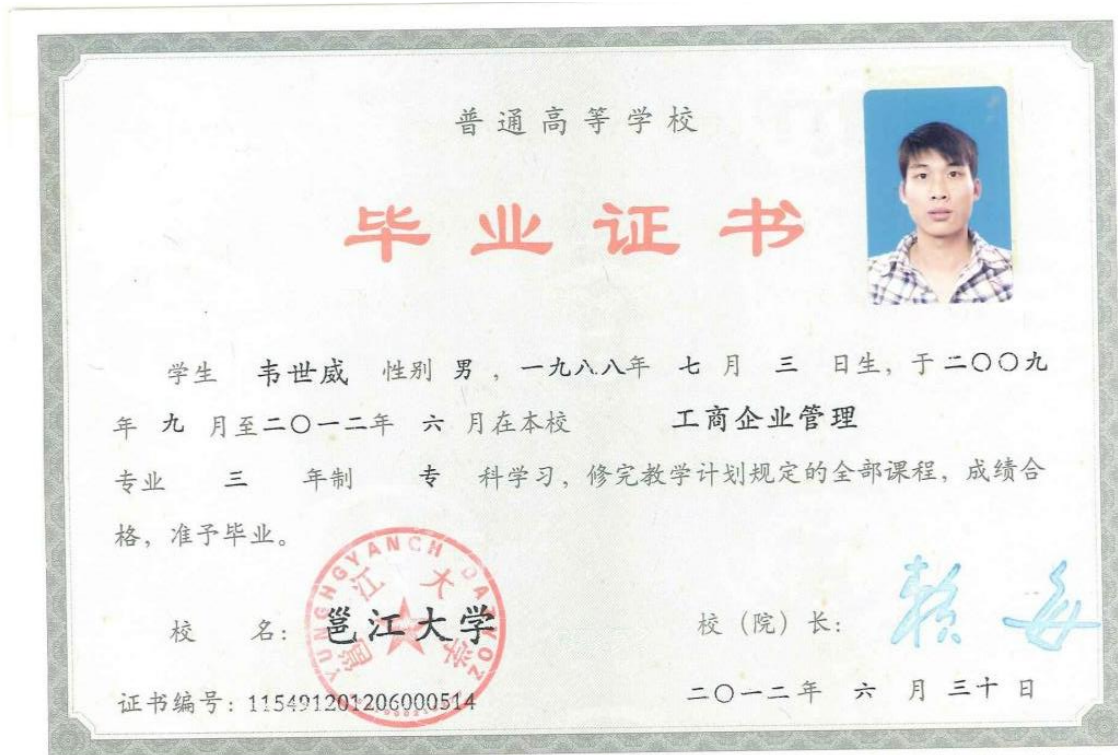 普通高等学校
毕业证书
学生 韦世威 性别 男 ，一九八八年 七 月 三 日生，于二〇〇九
年 九 月至二〇一二年 六 月在本校 工商企业管理
专业 三 年制 专 科学习，修完教学计划规定的全部课程，成绩合
格，准予毕业。
校 名：邕江大学
校（院）长：
证书编号：115491201206000514
二〇一二年 六 月 三十 日
邕江大学